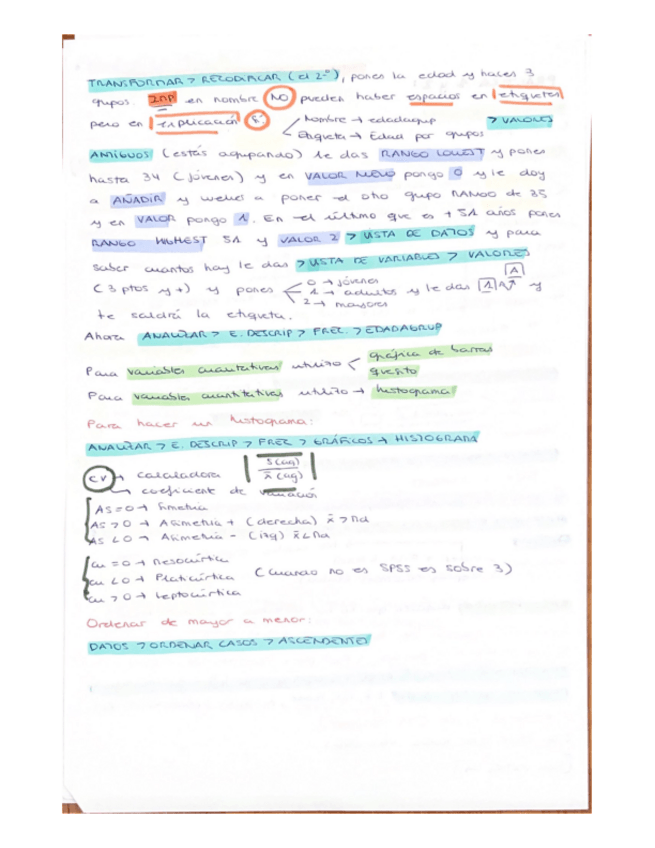 TRANSFORMAR > RECODIFICAR (el 2º), pones la edad y haces 3
grupos. IMP en nombre NO pueden haber espacios en etiquetas
pero en explicación SÍ
Nombre → edadagrup
Etiqueta → Edad por grupos
> VALORES
ANTIGUOS (estás agrupando) le das RANGO LOWEST y pones
hasta 34 (jóvenes) y en VALOR NUEVO pongo 0 y le doy
a AÑADIR y vuelvo a poner el otro grupo RANGO de 35
y en VALOR pongo 1. En el último que es + 51 años pones
RANGO HIGHEST 51 y VALOR 2 > VISTA DE DATOS y para
saber cuantos hay le das > VISTA DE VARIABLES > VALORES
(3 ptos y +) y pones 0 → jóvenes
1 → adultos y le das
2 → mayores
te saldrá la etiqueta.
Ahora ANALIZAR > E. DESCRIP > FREC. > EDADAGRUP
Para variables cuantitativas utilizo gráfica de barras
quesito
Para variables cuantitativas utilizo → histograma
Para hacer un histograma:
ANALIZAR > E. DESCRIP > FREC > GRÁFICOS → HISTOGRAMA
CV → calculadora
→ coeficiente de variación
AS = 0 → Simetría
AS > 0 → Asimetría + (derecha) x̄ > Md
AS < 0 → Asimetría - (izq) x̄ < Md
Cu = 0 → Mesocúrtica
Cu < 0 → Platicúrtica (Cuando no es SPSS es sobre 3)
Cu > 0 → Leptocúrtica
Ordenar de mayor a menor:
DATOS > ORDENAR CASOS > ASCENDENTE